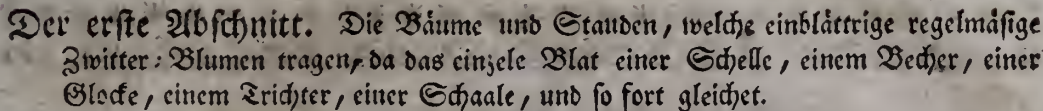 Der erſte Abſchnitt. Die Bäume und Stauden, welche einblättrige regelmäſige
Zwitter-Blumen tragen, da das einzele Blat einer Schelle, einem Becher, einer
Glocke, einem Trichter, einer Schaale, und ſo fort gleichet.